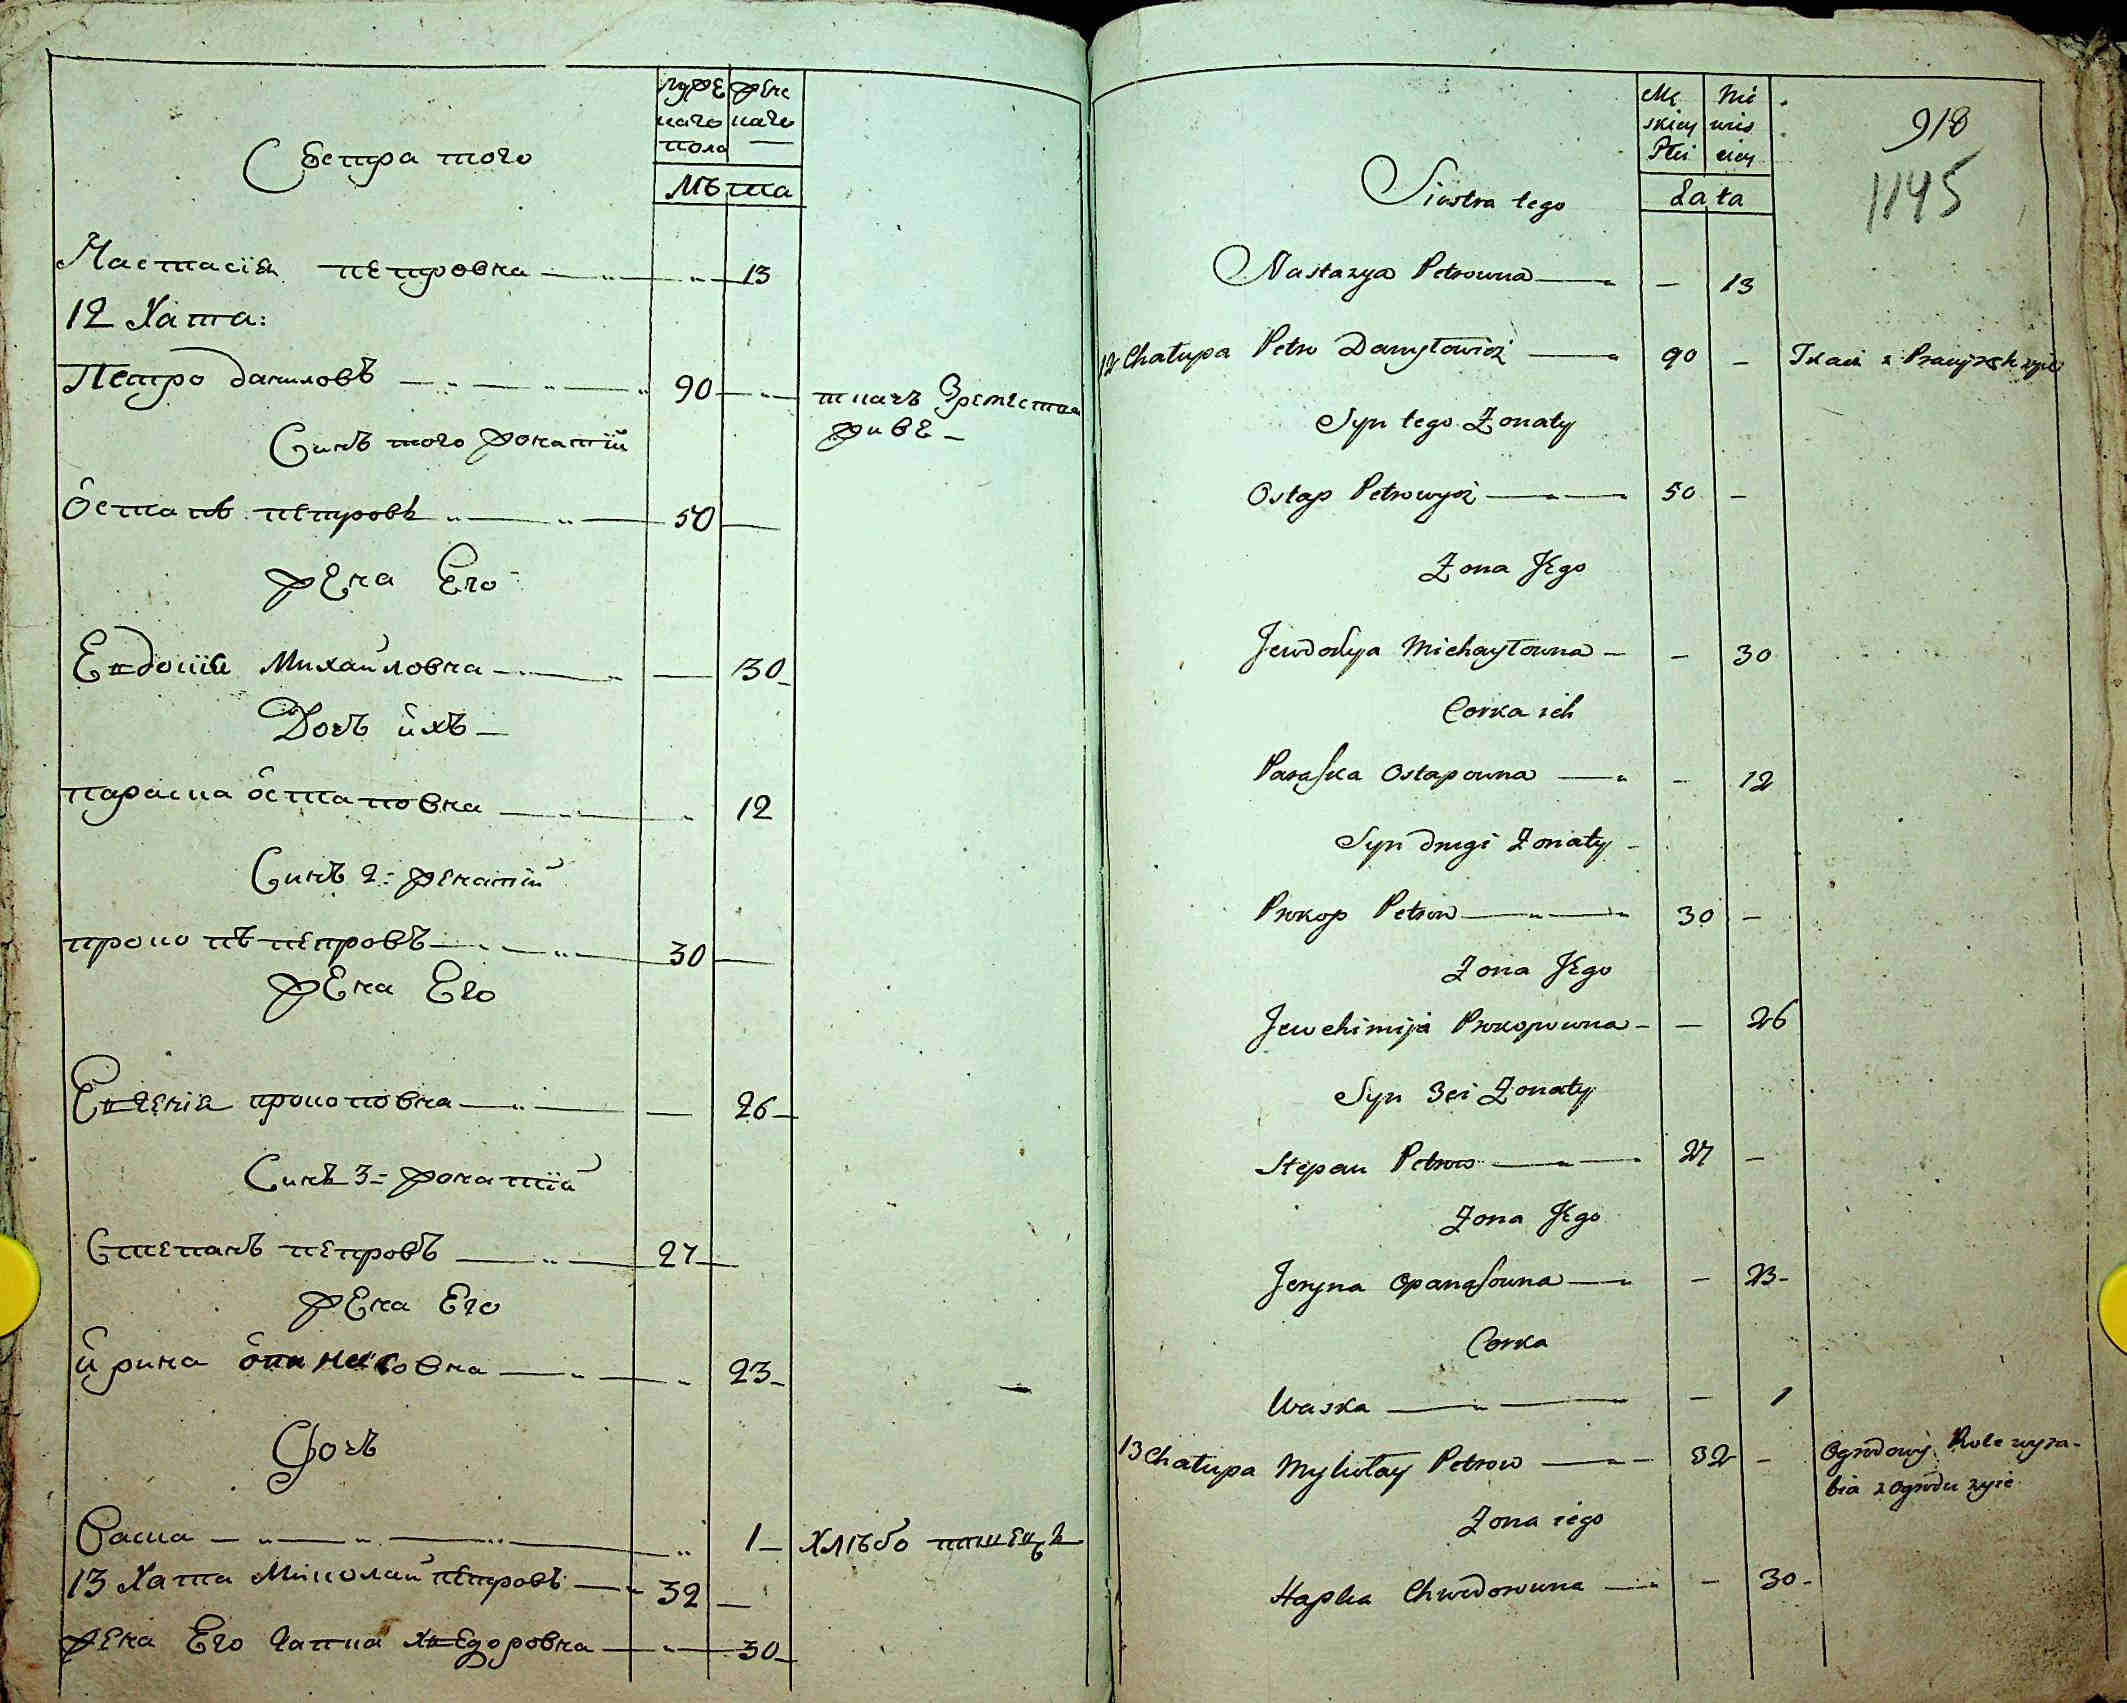 муже жене
наго наго
пола —
Лѣта
Сестра того
Настасіея петровна 13
12 Хата:
Петро даниловъ 90 — ткачъ Зремества
живе —
Синъ того жонатій
Остапъ петровъ 50 —
жена Его
Евдокия Михайловна — 30
Дочъ ихъ —
параска остаповна 12
Синъ 2: женатій
прокопъ петровъ 30 —
жена Его
Евгения прокоповна — 26
Синъ 3= жонатій
Степанъ петровъ 27 —
жена Его
ирина опанасовна 23
Дочъ
Васка 1 хлѣбо пашецъ
13 Хата Миколай петровъ 32 —
жена Его гапка хведоровна 30
Mę Nie
skiey wies
Płci ciey
Lata
918
1145
Siostra tego
Nastazya Petrowna — 13
12 Chałupa Petro Danyłowicz 90 — Tkacz z
Syn tego Zonaty
Ostap Petrowycz 50 —
Zona Jego
Jewdokya Michayłowna — 30
Corka ich
Paraska Ostapowna — 12
Syn drugi Zonaty
Prokop Petrow 30 —
Zona Jego
Jewchimija Prokopowna — 26
Syn 3ci Zonaty
Stepan Petrow 27 —
Zona Jego
Jeryna Opanasowna — 23
Corka
Waska — 1
13 Chałupa Mykołay Petrow 32 — Ogrodowy Role wyra-
bia z Ogrodu zyie
Zona iego
Hapka Chwedorowna — 30